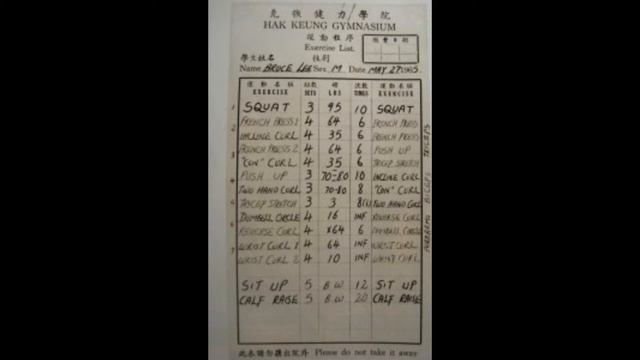 克強健力學院
HAK KEUNG GYMNASIUM
運動程序
Exercise List.
學生姓名 性別
Name BRUCE LEE Sex M. Date MAY 27 1965.
運動名稱 組數 磅 次數 運動名稱
EXERCISE SETS LBS TIMES EXERCISE
1 SQUAT 3 95 10 SQUAT
2 FRENCH PRESS 1 4 64 6 FRENCH PRESS
INCLINE CURL 4 35 6 FRENCH PRESS
3 FRENCH PRESS 2 4 64 6 PUSH UP
"CON" CURL 4 35 6 TRICEP STRETCH
4 PUSH UP 3 70-80 10 INCLINE CURL
TWO HAND CURL 3 70-80 8 "CON" CURL
5 TRICEP STRETCH 3 3 TWO HAND CURL
6 DUMBELL CIRCLE 4 16 INF REVERSE CURL
REVERSE CURL 4 64 6 DUMBELL CIRCLE
7 WRIST CURL 1 4 64 INF WRIST CURL
WRIST CURL 2 4 10 INF WRIST CURL
SIT UP 5 B.W 12 SIT UP
CALF RAISE 5 B.W 20 CALF RAISE
TRICEPS
BICEPS
FOREARMS
此表請勿攜出院外 Please do not take it away